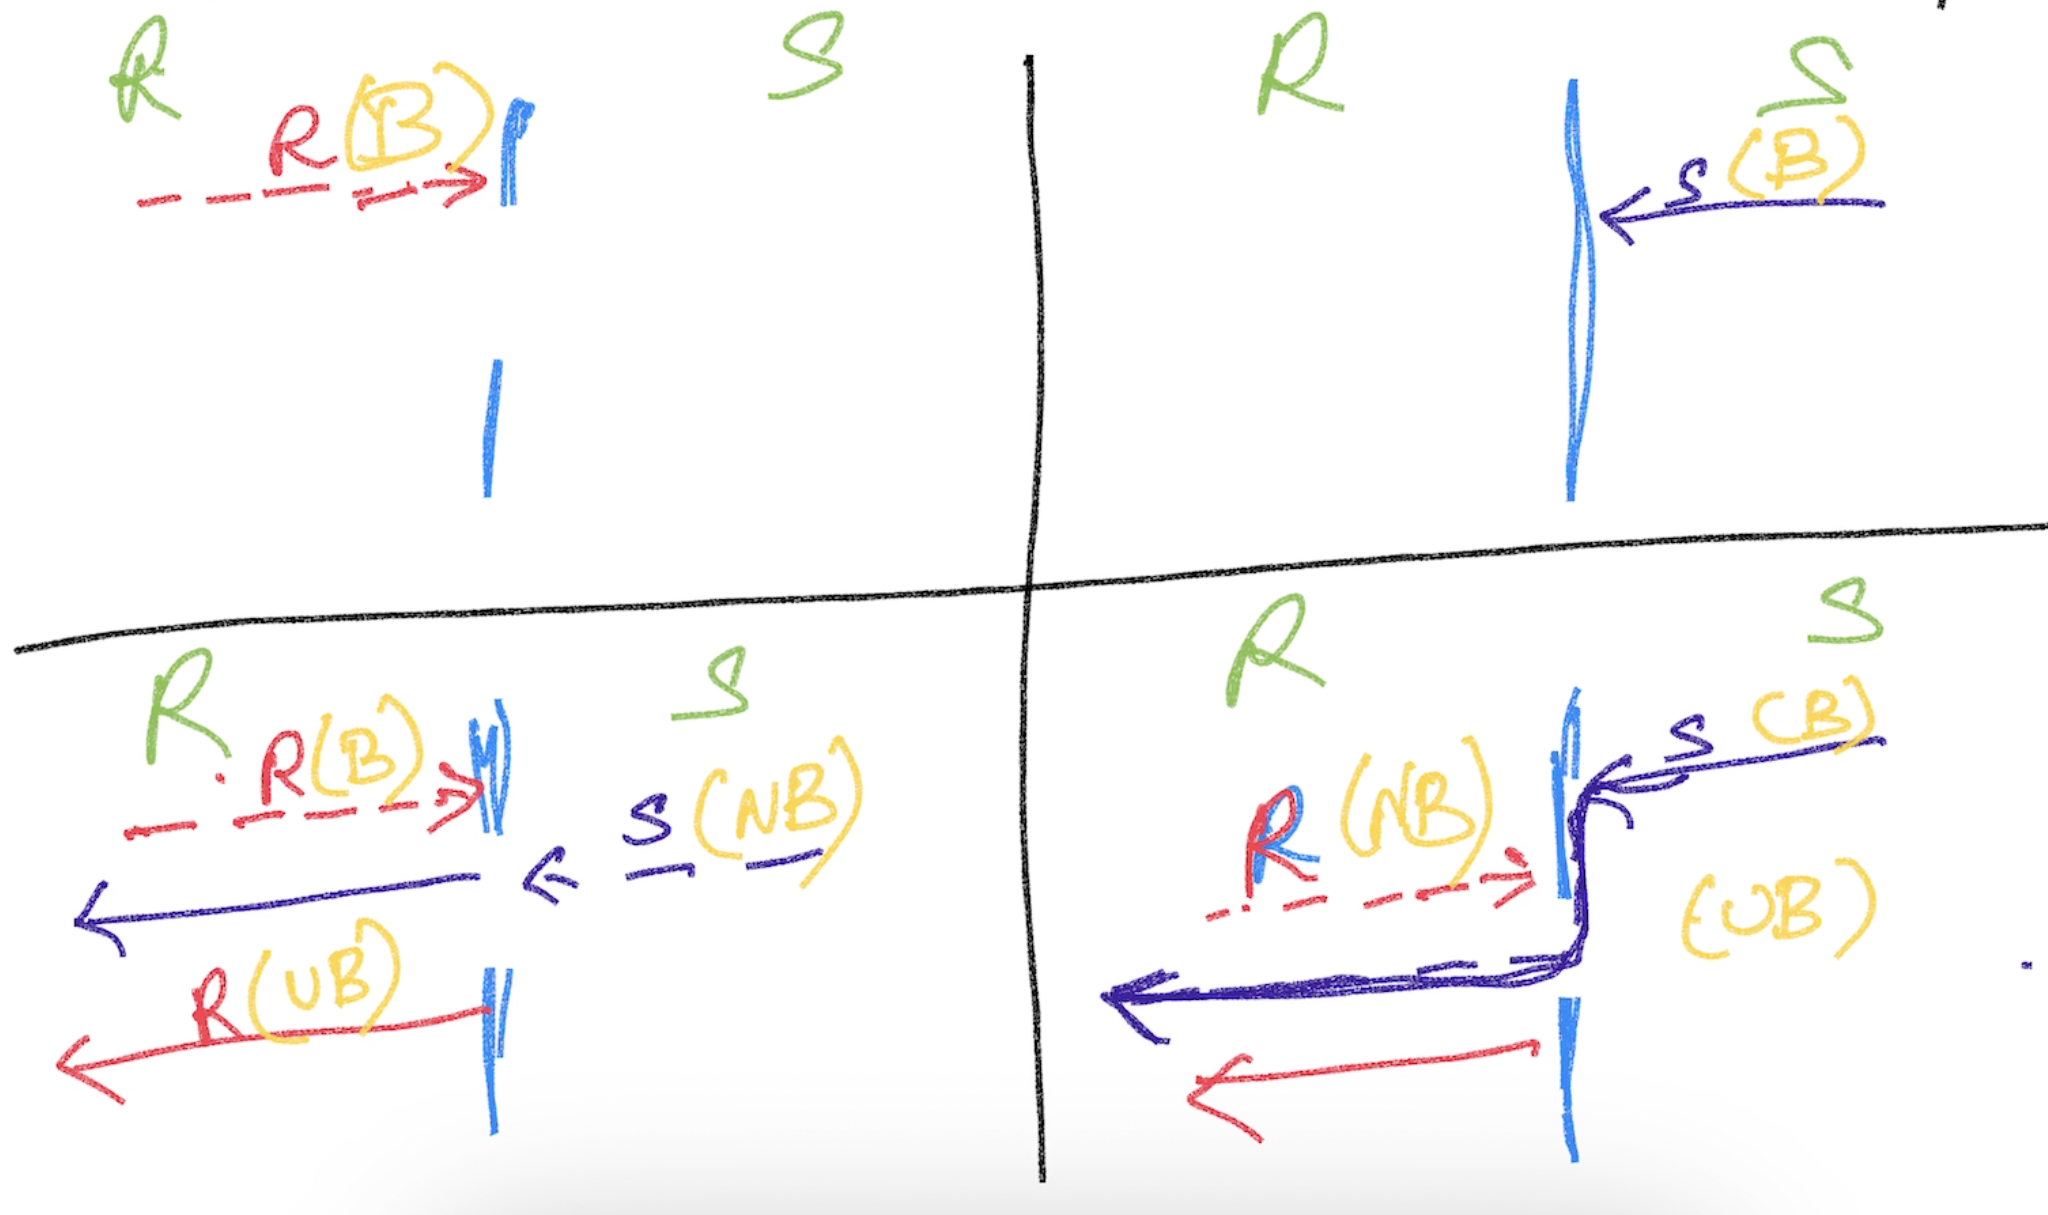 R S
R (B)
R S
S (B)
R S
R (B)
S (NB)
R (UB)
R S
S (B)
R (NB)
(UB)